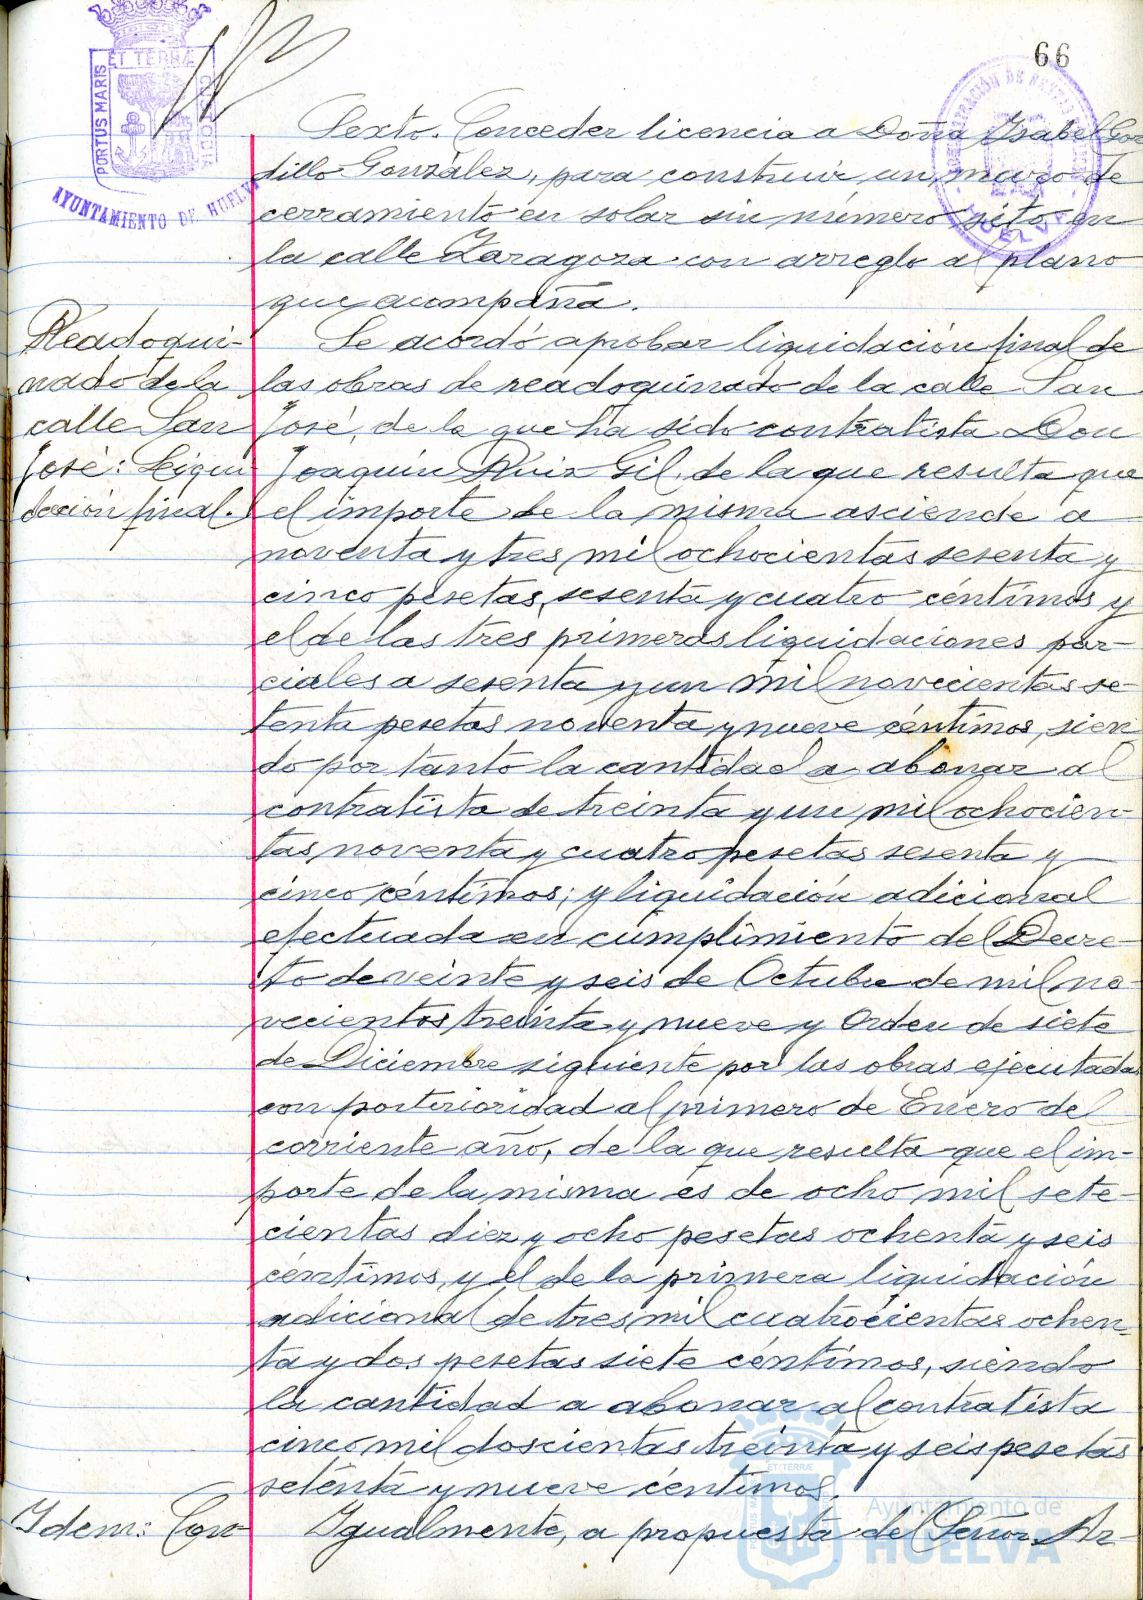 66
PORTUS MARIS ET TERRÆ CUSTODIA
AYUNTAMIENTO DE HUELVA
HUELVA
Sexto. Conceder licencia a Doña Isabel Gor
dillo González, para construir un muro de
cerramiento en solar sin número sito en
la calle Zaragoza con arreglo al plano
que acompaña.
Readoqui-
nado de la
calle San
José: Liqui
dación final.
Se acordó aprobar liquidación final de
las obras de readoquinado de la calle San
José, de la que ha sido contratista Don
Joaquín Ruiz Gil, de la que resulta que
el importe de la misma asciende a
noventa y tres mil ochocientas sesenta y
cinco pesetas, sesenta y cuatro céntimos y
el de las tres primeras liquidaciones par-
ciales a sesenta y un mil novecientas se-
tenta pesetas noventa y nueve céntimos, sien
do por tanto la cantidad a abonar al
contratista de treinta y un mil ochocien-
tas noventa y cuatro pesetas sesenta y
cinco céntimos; y liquidación adicional
efectuada en cumplimiento del Decre-
to de veinte y seis de Octubre de mil no-
vecientos treinta y nueve y Orden de siete
de Diciembre siguiente por las obras ejecutadas
con posterioridad al primero de Enero del
corriente año, de la que resulta que el im-
porte de la misma es de ocho mil sete-
cientas diez y ocho pesetas ochenta y seis
céntimos, y el de la primera liquidación
adicional de tres mil cuatrocientas ochen-
ta y dos pesetas siete céntimos, siendo
la cantidad a abonar al contratista
cinco mil doscientas treinta y seis pesetas
setenta y nueve céntimos.
Idem: Con-
Igualmente, a propuesta del Señor Ar-
Ayuntamiento de
HUELVA